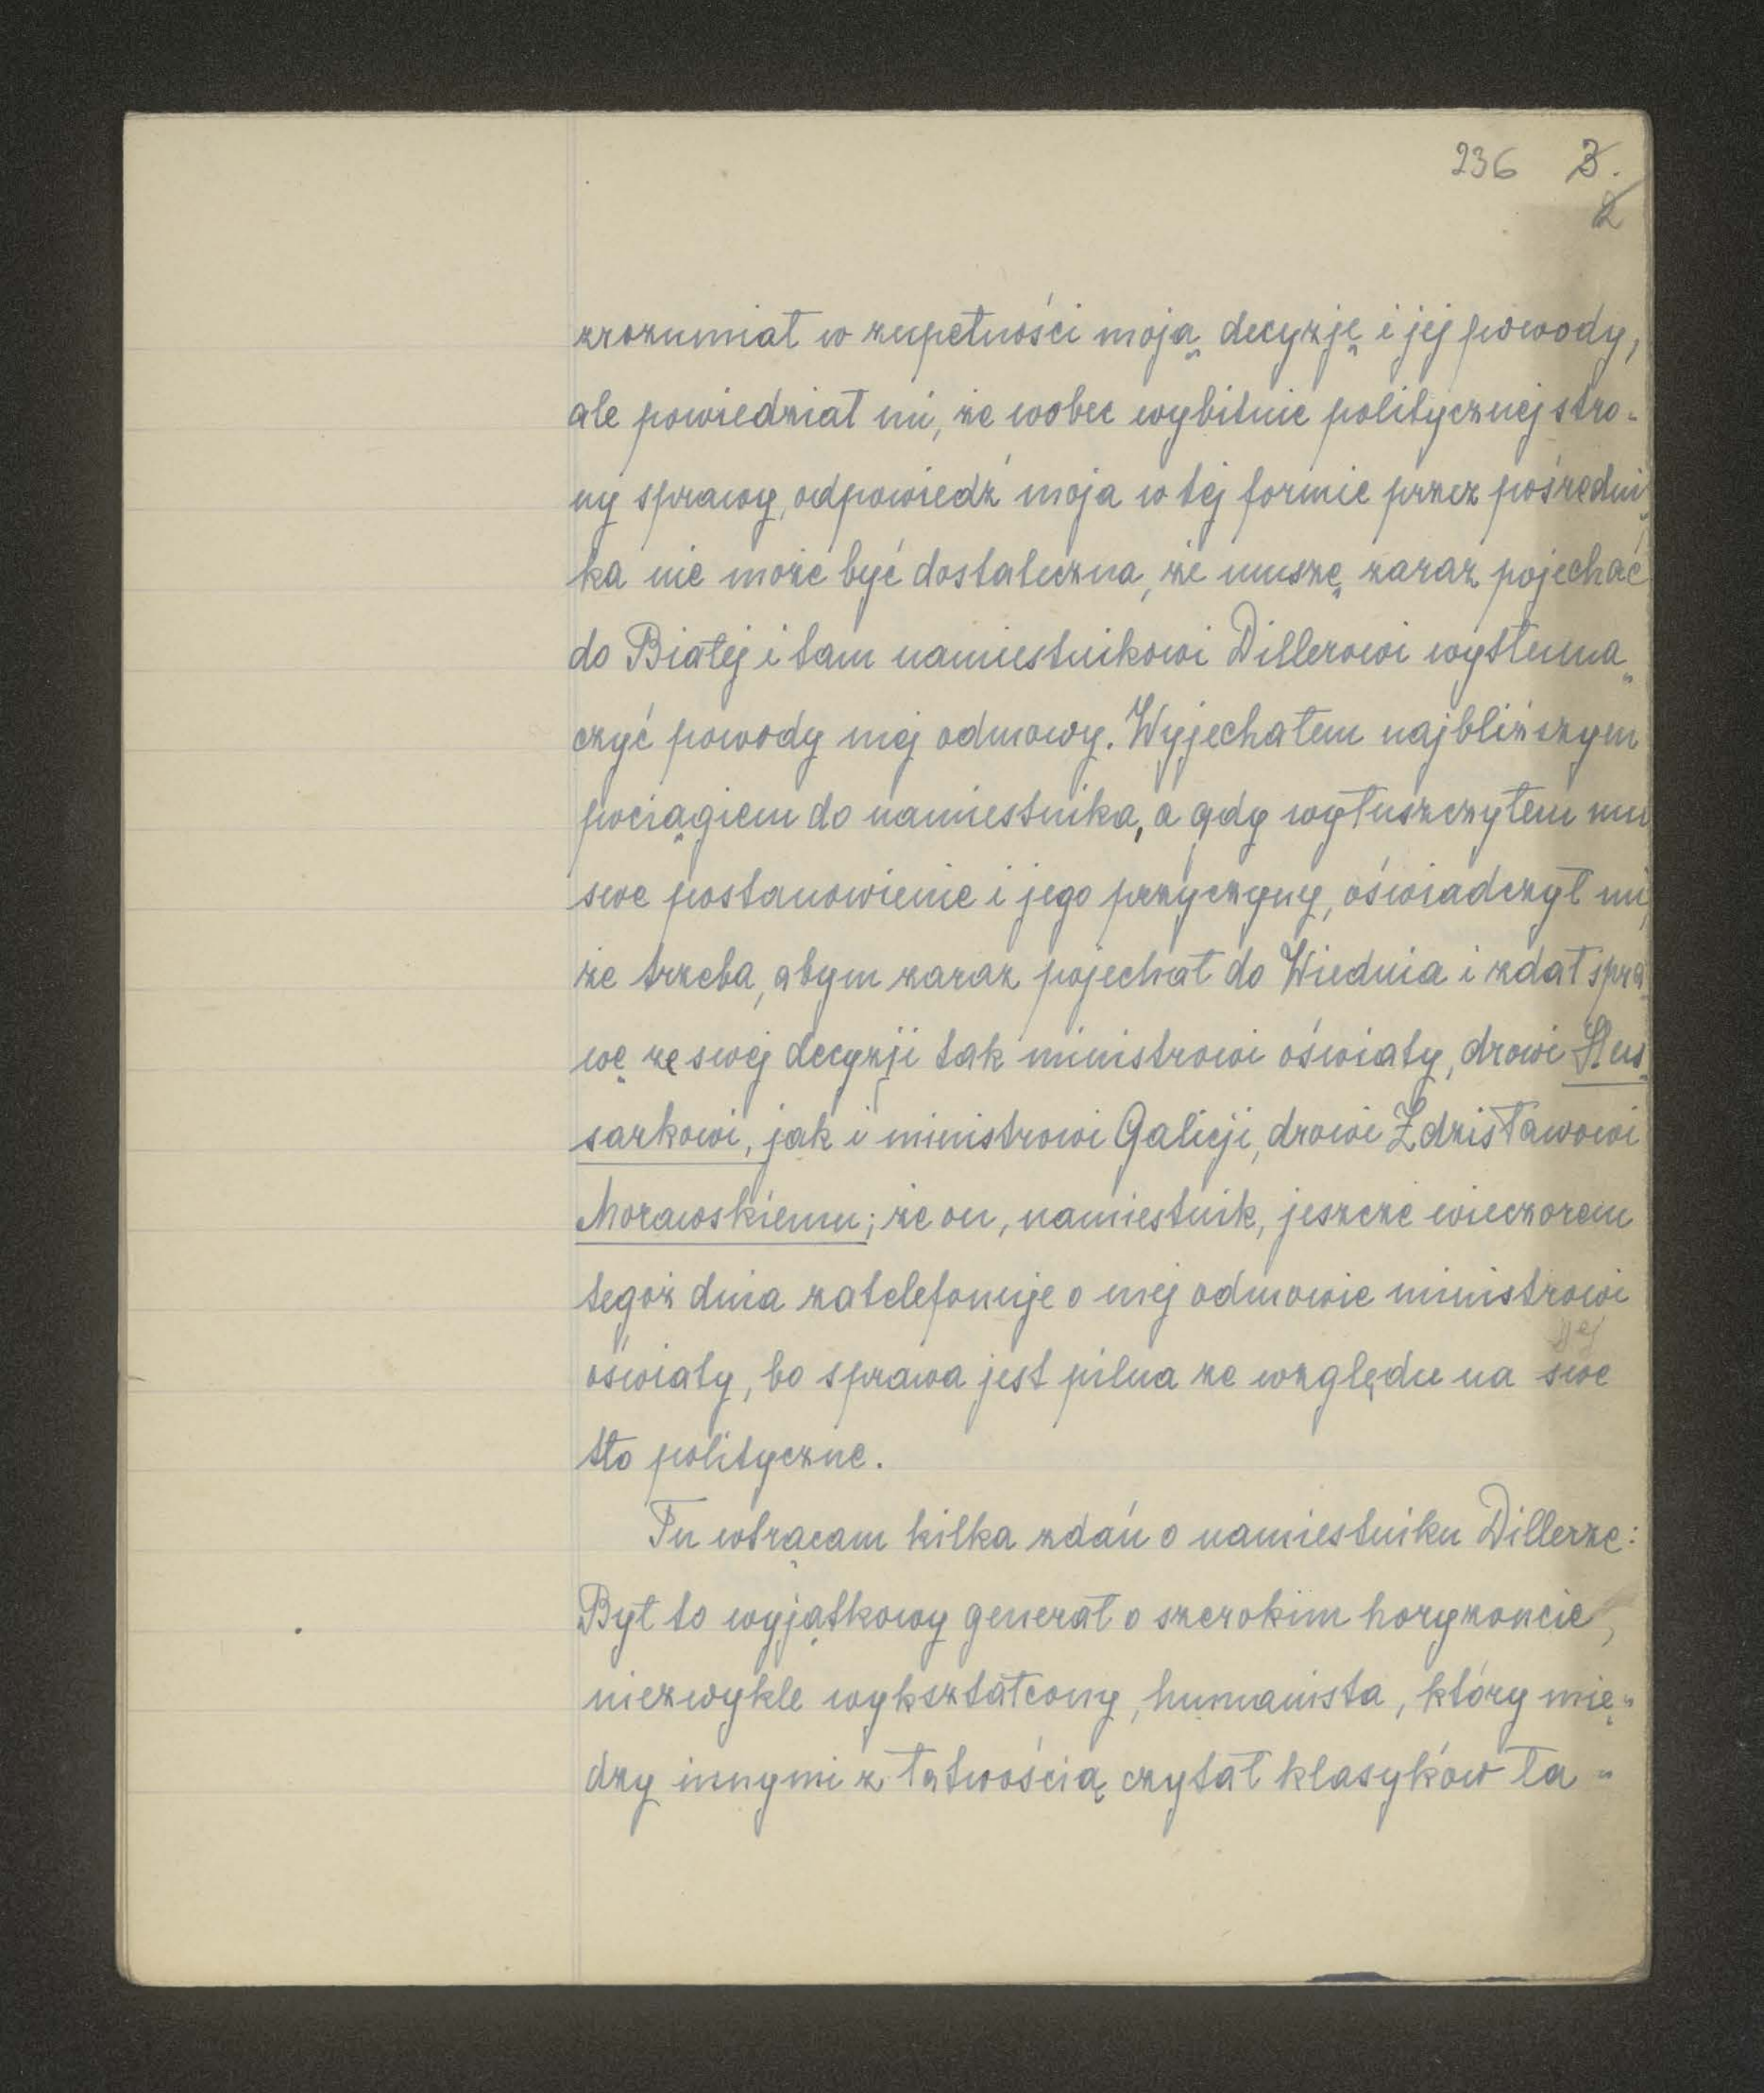 236 3.
2
zrozumiał w zupełności moją decyzję i jej powody,
ale powiedział mi, że wobec wybitnie politycznej stro-
ny sprawy, odpowiedź moja w tej formie przez pośredni-
ka nie może być dostateczna, że muszę zaraz pojechać
do Białej i tam namiestnikowi Dillerowi wytłuma-
czyć powody mej odmowy. Wyjechałem najbliższym
pociągiem do namiestnika, a gdy wyłuszczyłem mu
swe postanowienie i jego przyczyny, oświadczył mi,
że trzeba, abym zaraz pojechał do Wiednia i zdał spra-
wę ze swej decyzji tak ministrowi oświaty, drowi Hus-
sarkowi, jak i ministrowi Galicji, drowi Zdzisławowi
Morawskiemu; że on, namiestnik, jeszcze wieczorem
tegoż dnia zatelefonuje o mej odmowie ministrowi
jej
oświaty, bo sprawa jest pilna ze względu na swe
tło polityczne.
Tu wtrącam kilka zdań o namiestniku Dillerze:
Był to wyjątkowy generał o szerokim horyzoncie,
niezwykle wykształcony, humanista, który mię-
dzy innymi z łatwością czytał klasyków ła-